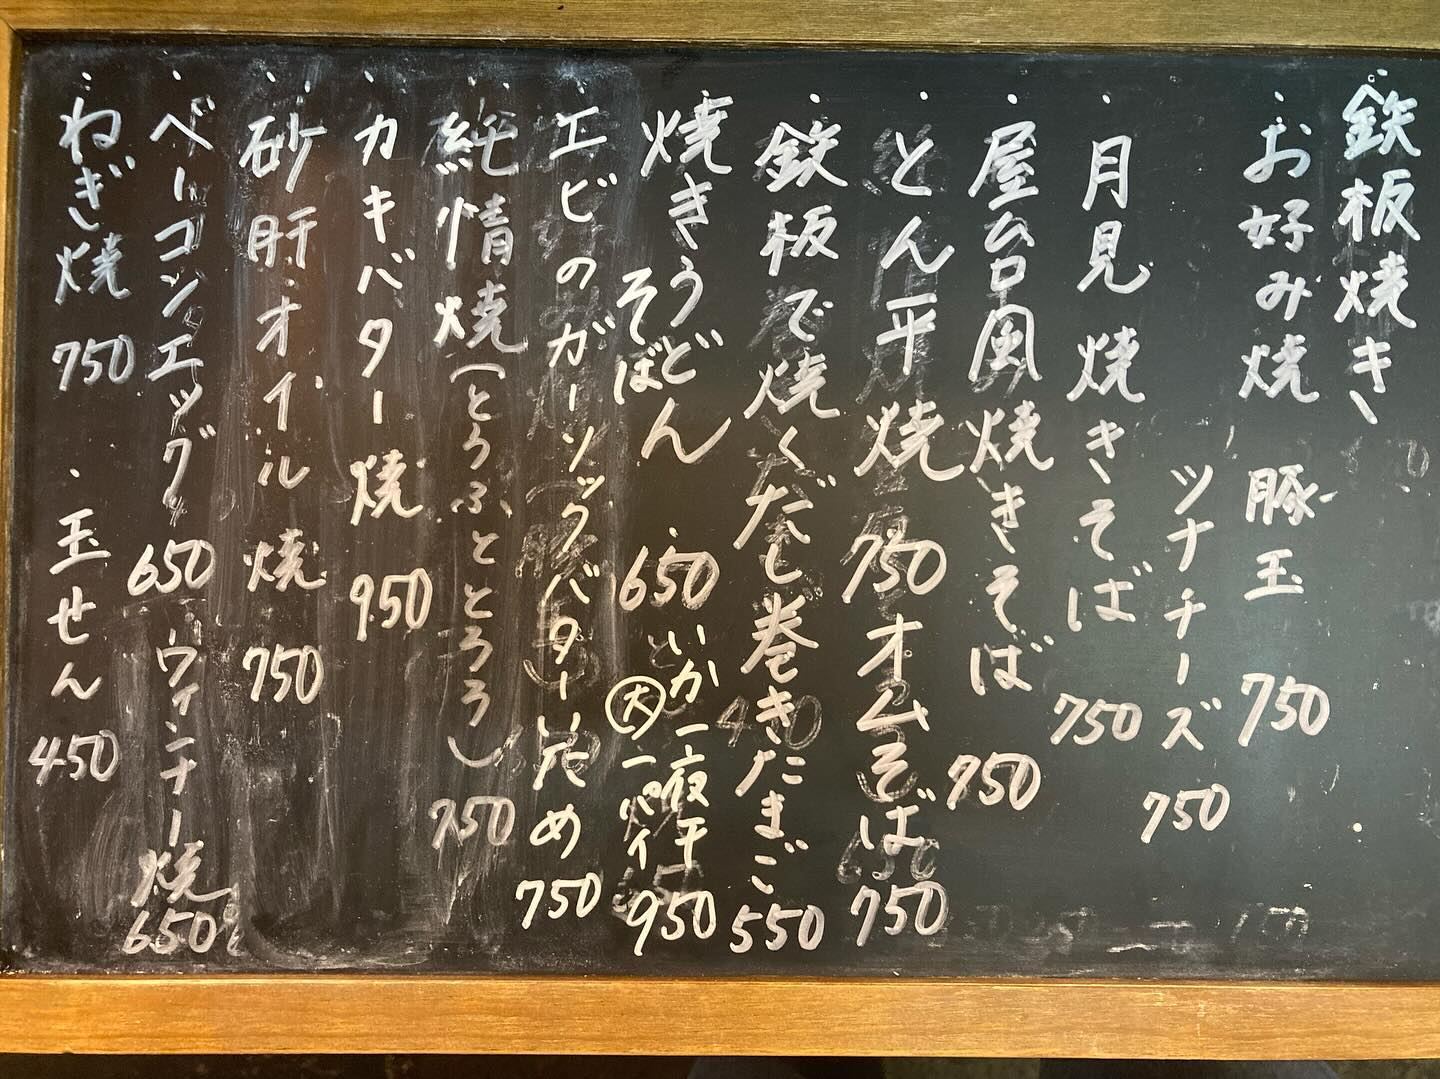 鉄板焼き
・お好み焼 豚玉 750
ツナチーズ 750
・月見焼きそば 750
・屋台風焼きそば 750
・とん平焼 750
オムそば 750
・鉄板で焼くだし巻きたまご 550
・焼きうどん
そば 650
・いか一夜干
大一パイ 950
・エビのガーリックバターいため 750
・純情焼(とうふととろろ) 750
・カキバター焼 950
・砂肝オイル焼 750
・ベーコンエッグ 650
ウィンナー焼 650
・ねぎ焼 750
・玉せん 450